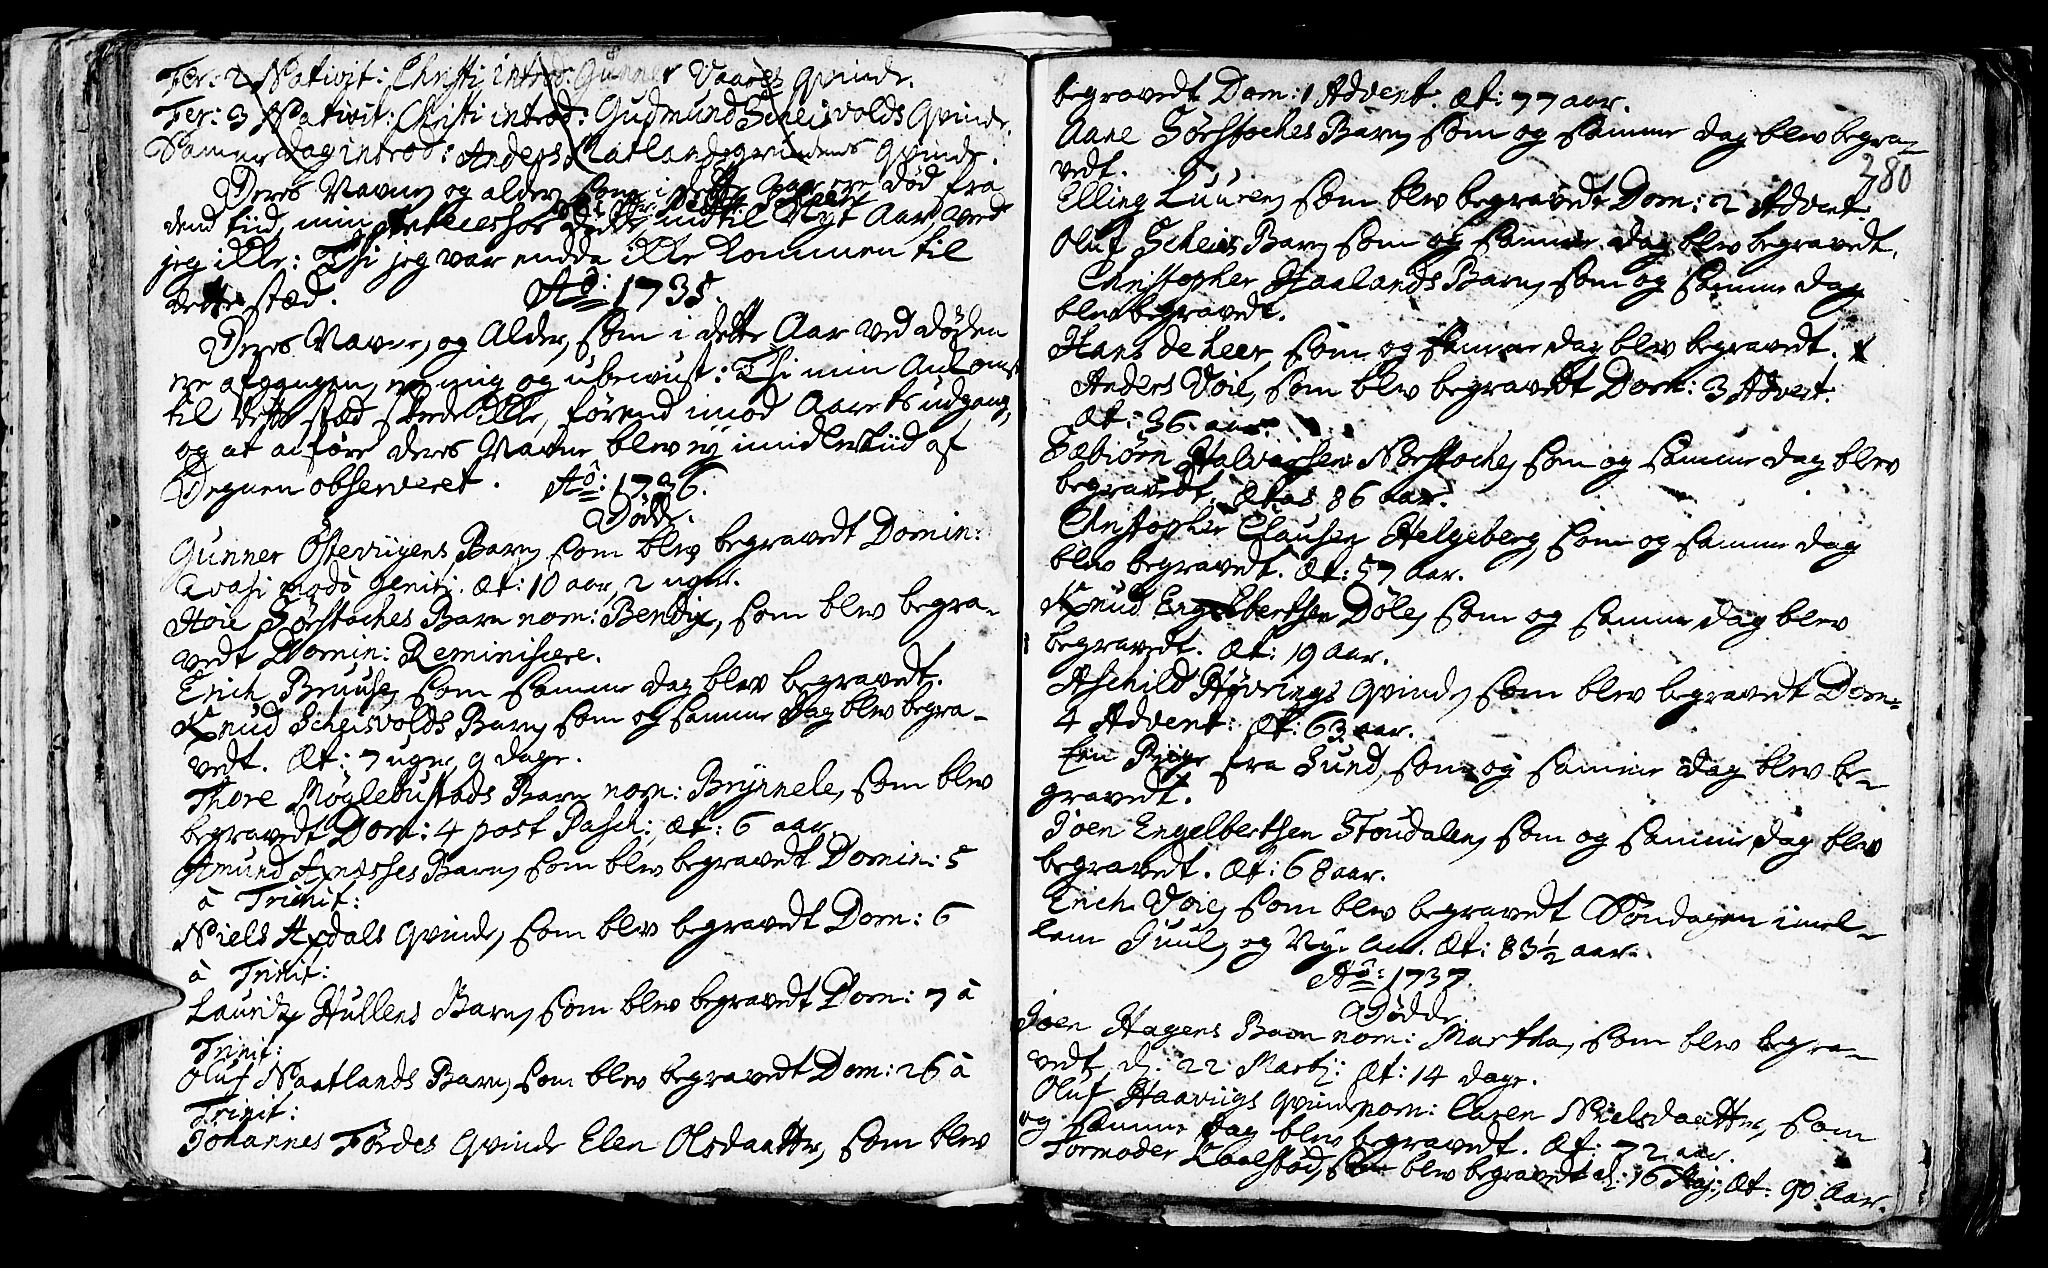 Fer: 2 Nativit: Christi introd: Gunner Vaages Qvinde.
Fer: 3 Nativit: Christi introd: Gudmund Scheisvolds Qvinde.
Samme Dag introd: Anders Natlands Qvinde.
Deres Navne og alder, som i dette Aar ere død fra
dend tiid, min Antecessor døde, indtil Nyt Aar, veed
jeg ikke: Thi jeg var endda ikke kommen til
dette stæd.
Aō: 1735.
Deres Navne, og Alder, som i dette Aar ved døden
ere afgangen, er mig og ubevust: Thi min Ankomst
til dette stæd skede ikke, førend imod Aarets udgang,
og at anføre deres Navne blev ej imidlertiid af
Degnen observeret.
Aō: 1736.
Døde.
Gunner Østeviigens Barn, som blev begravedt Domin:
Qvasi modo geniti: Æt: 10 aar, 2 uger.
Aoie Sørstoches Barn nom: Bendix, som blev begra-
vedt Domin: Reminiscere.
Erich Bruuse, som samme dag blev begravedt.
Knud Scheisvolds Barn, som og samme Dag blev begra-
vedt. Æt: 7 uger, 9 dage.
Thore Møglebustads Barn nom: Brynnele, som blev
begravedt Dom: 4 post Pasch: Æt: 6 aar.
Amund Axnæsses Barn, som blev begravedt Domin: 5
à Trinit:
Niels Axdals Qvinde, som blev begravedt Dom: 6
à Trinit:
Lauritz Hullens Barn, som blev begravedt Dom: 7 à
Trinit:
Oluf Naatlands Barn, som blev begravedt Dom: 26 à
Trinit:
Johannes Førdes Qvinde Elen Olsdaatter, som blev
280
begravedt Dom: 1 Advent. Æt: 77 aar.
Aane Sørstoches Barn, som og samme dag blev begra-
vedt.
Elling Luuren, som blev begravedt Dom: 2 Advent:
Oluf Scheies Barn, som og samme dag blev begravedt.
Christopher Haalands Barn, som og samme dag
blev begravedt.
Hans de heer, som og samme dag blev begravedt.
Anders Voie, som blev begravedt Dom: 3 Advent:
Æt: 36 aar.
Sæbiørn Halversen Nørstoche, som og samme dag blev
begravedt. Ætas 86 aar.
Christopher Clausen Helgeberg, som og samme dag
blev begravedt. Æt: 57 aar.
Knud Engelbertsen Døle, som og samme dag blev
begravedt. Æt: 19 Aar.
Aschild Høvrings Qvinde, som blev begravedt Dom:
4 Advent: Æt: 63 aar.
Een Piige fra Sund, som og samme dag blev be-
gravedt.
Joen Engelbertsen Stoudalen, som og samme dag blev
begravedt. Æt: 68 aar.
Erich Voie, som blev begravedt Søndagen imel-
lem Juul, og Nye Aar. Æt: 83½ aar.
Aō: 1737
Døde.
Joen Hagens Barn nom: Martha, som blev begra-
vedt d: 22 Martj: Æt: 14 dage.
Oluf Haaviigs Qvinde nom: Caren Nielsdaatter, som
og samme dag blev begravedt. Æt: 72 aar.
Tormoder Laalstad, som blev begravedt d: 16 Maj: Æt: 90 Aar.